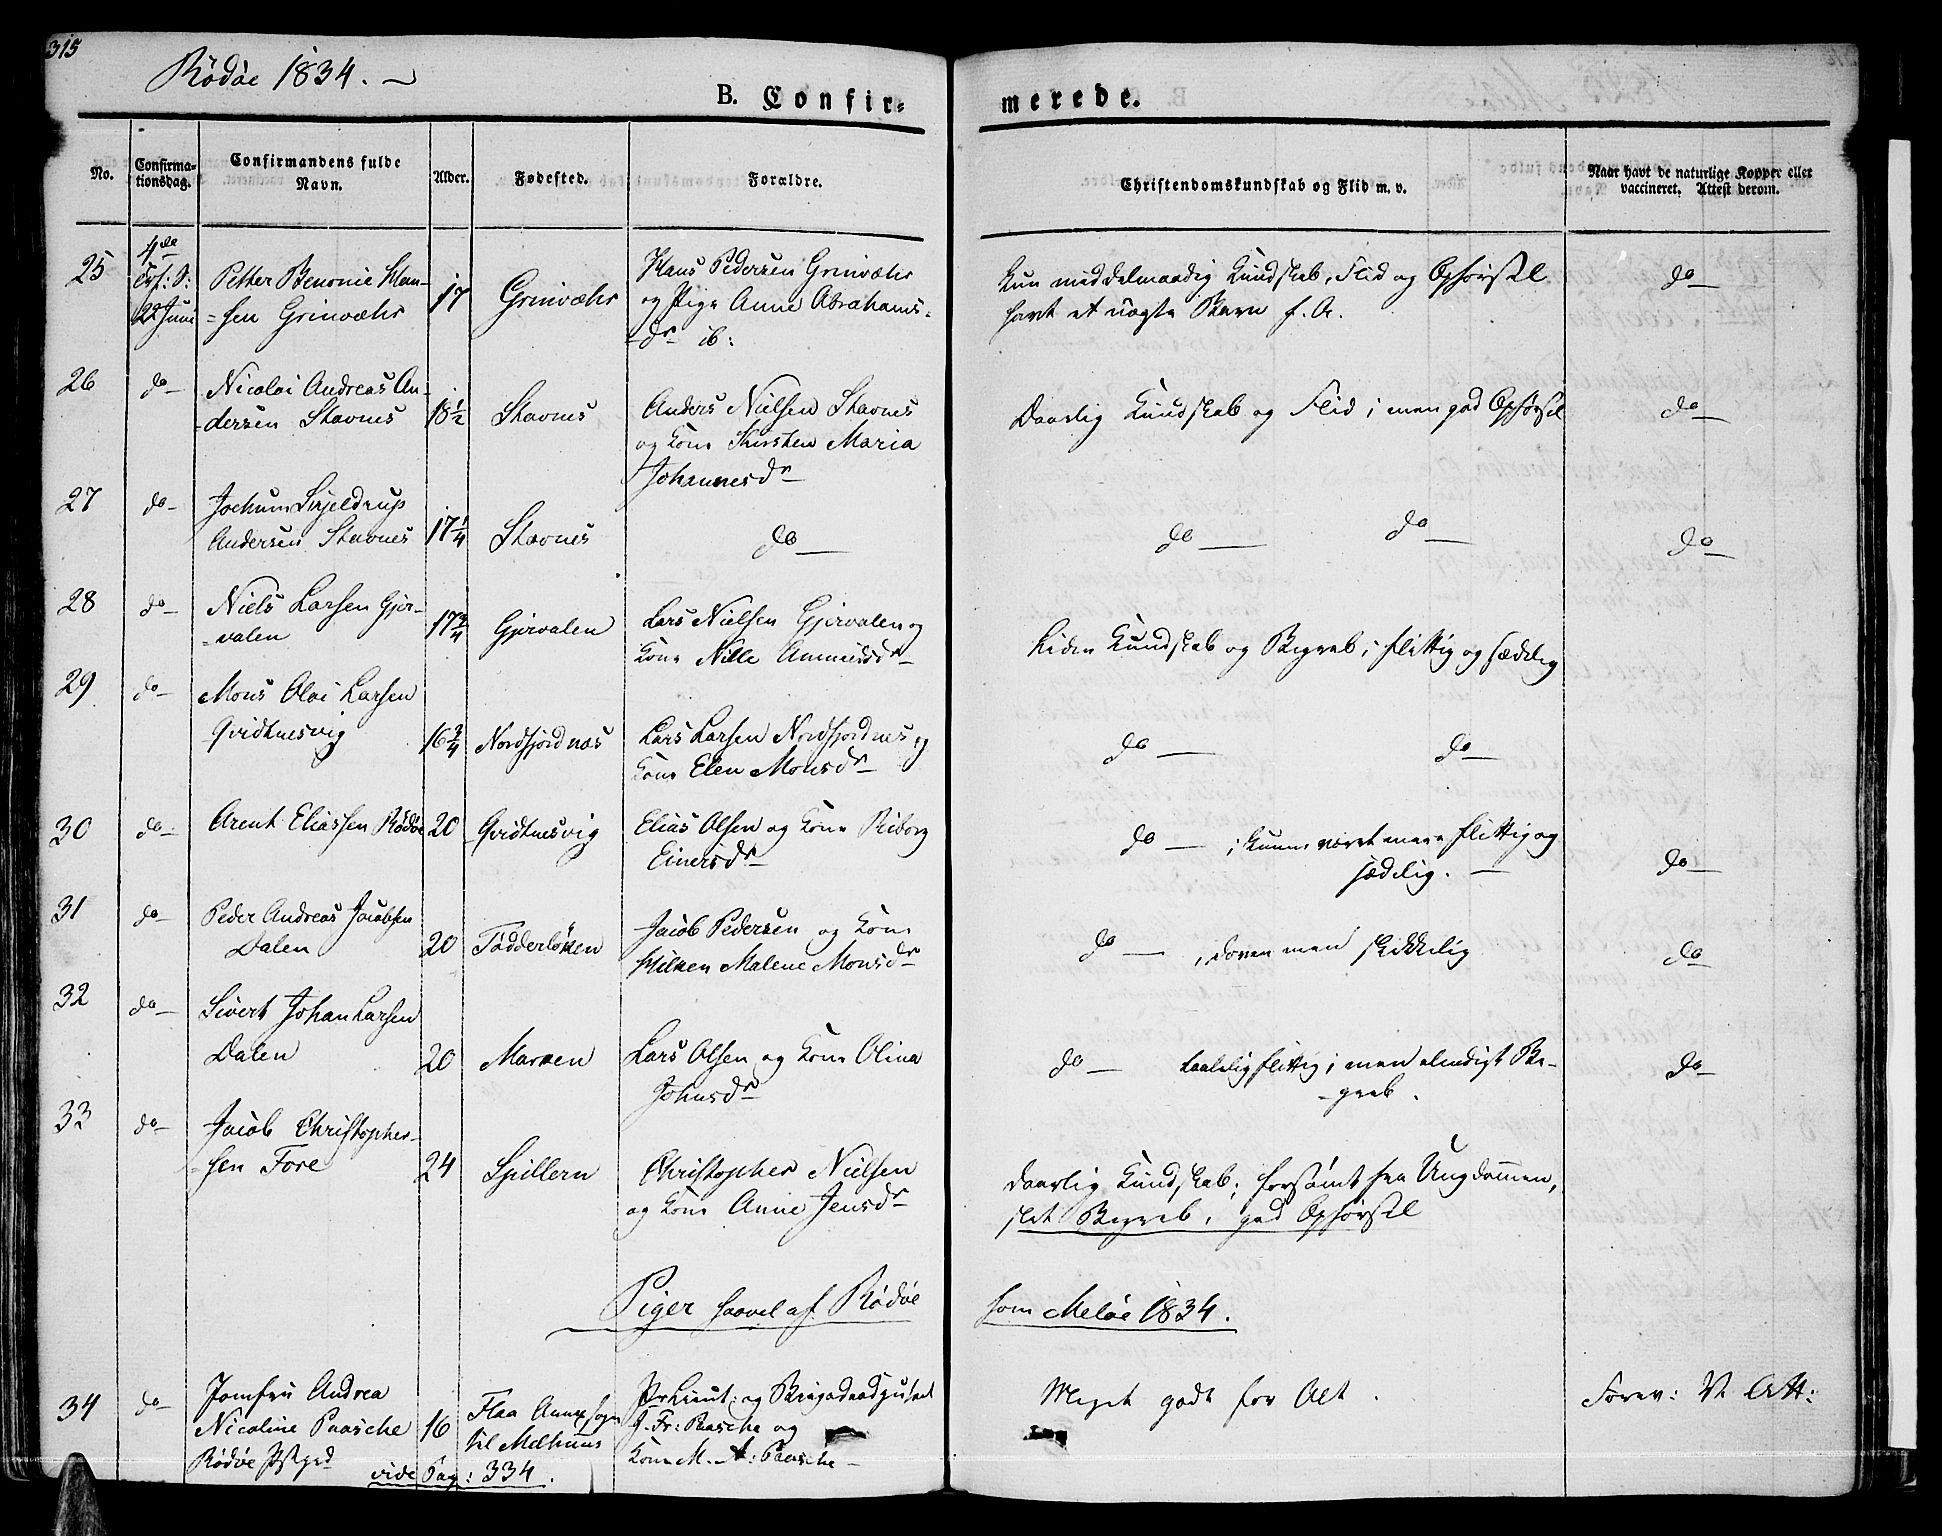 315
Rödöe 1834. –
B. Confir=
merede.
No.
Confirma=
tionsdag.
Confirmandens fulde
Navn.
Alder.
Fødested.
Forældre.
Christendomskundskab og Flid m. v.
Naar havt de naturlige Kopper eller
vaccineret. Attest derom.
25
4de
22 Juni
Petter Benonie Han-
=sen Grinvæhr
17
Grinvæhr
Hans Pedersen Grinvæhr
og Pige Anne Abrahams-
dr ib:
Kun middelmaadig Kundskab, Flid og Opførsel
havt et uægte Barn f. A.
do
26
do
Nicolai Andreas An-
-dersen Stavnes
18½
Stavnes
Anders Nielsen Stavnes
og Kone Kirsten Maria
Johannesdr
Daarlig Kundskab og Flid; men god Opførsel
do
27
do
Jochum Skjeldrup
Andersen Stavnes
17¼
Stavnes
do
do do
do
28
do
Niels Larsen Gjer-
=valen
17¾
Gjervalen
Lars Nielsen Gjervalen og
Kone Nille
Liden Kundskab og Begreb; flittig og sædelig
29
do
Mons Olai Larsen
Qvidtnesvig
16¾
Nordfjordnæs
Lars Larsen Nordfjordnes og
Kone Elen Monsdr
do do
30
do
Arent Eliassen Rödöe
20
Qvidtnesvig
Elias Olsen og Kone Riborg
Einersdr
do ; kunne været mere flittig og
sædelig.
do
31
do
Peder Andreas Jacobsen
Dalen
20
Tødderløkken
Jacob Pedersen og Kone
Malene Monsdr
do , doven men skikkelig
do
32
do
Sivert Johan Larsen
Dalen
20
Marken
Lars Olsen og Kone Olina
Johnsdr
do taalelig flittig; men elendigt Be-
-greb.
do
33
do
Jacob Christopher-
-sen Fore
24
Spillern
Christopher Nielsen
og Kone Anne Jensdr
Daarlig Kundskab; forsømt fra Ungdommen,
slet Begreb, god Opførsel
Piger saavel af Rödöe
som Meløe 1834.
34
do
Jomfru Andrea
Nicoline Paasche
Rödöe
16
Flaa Annexsogn
til Melhuus
Pr Lieut: og Brigadeadjutant
J. Fr: Paasche og
Kone M. A: Paasche
Meget godt for Alt.
Forev: V. Att:
vide Pag: 334.